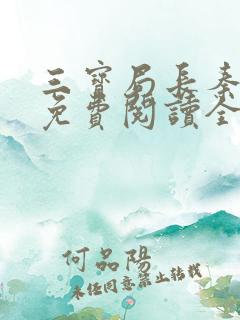 三寶局長秦
免費閱讀全
何品陽
未經同意禁止轉載